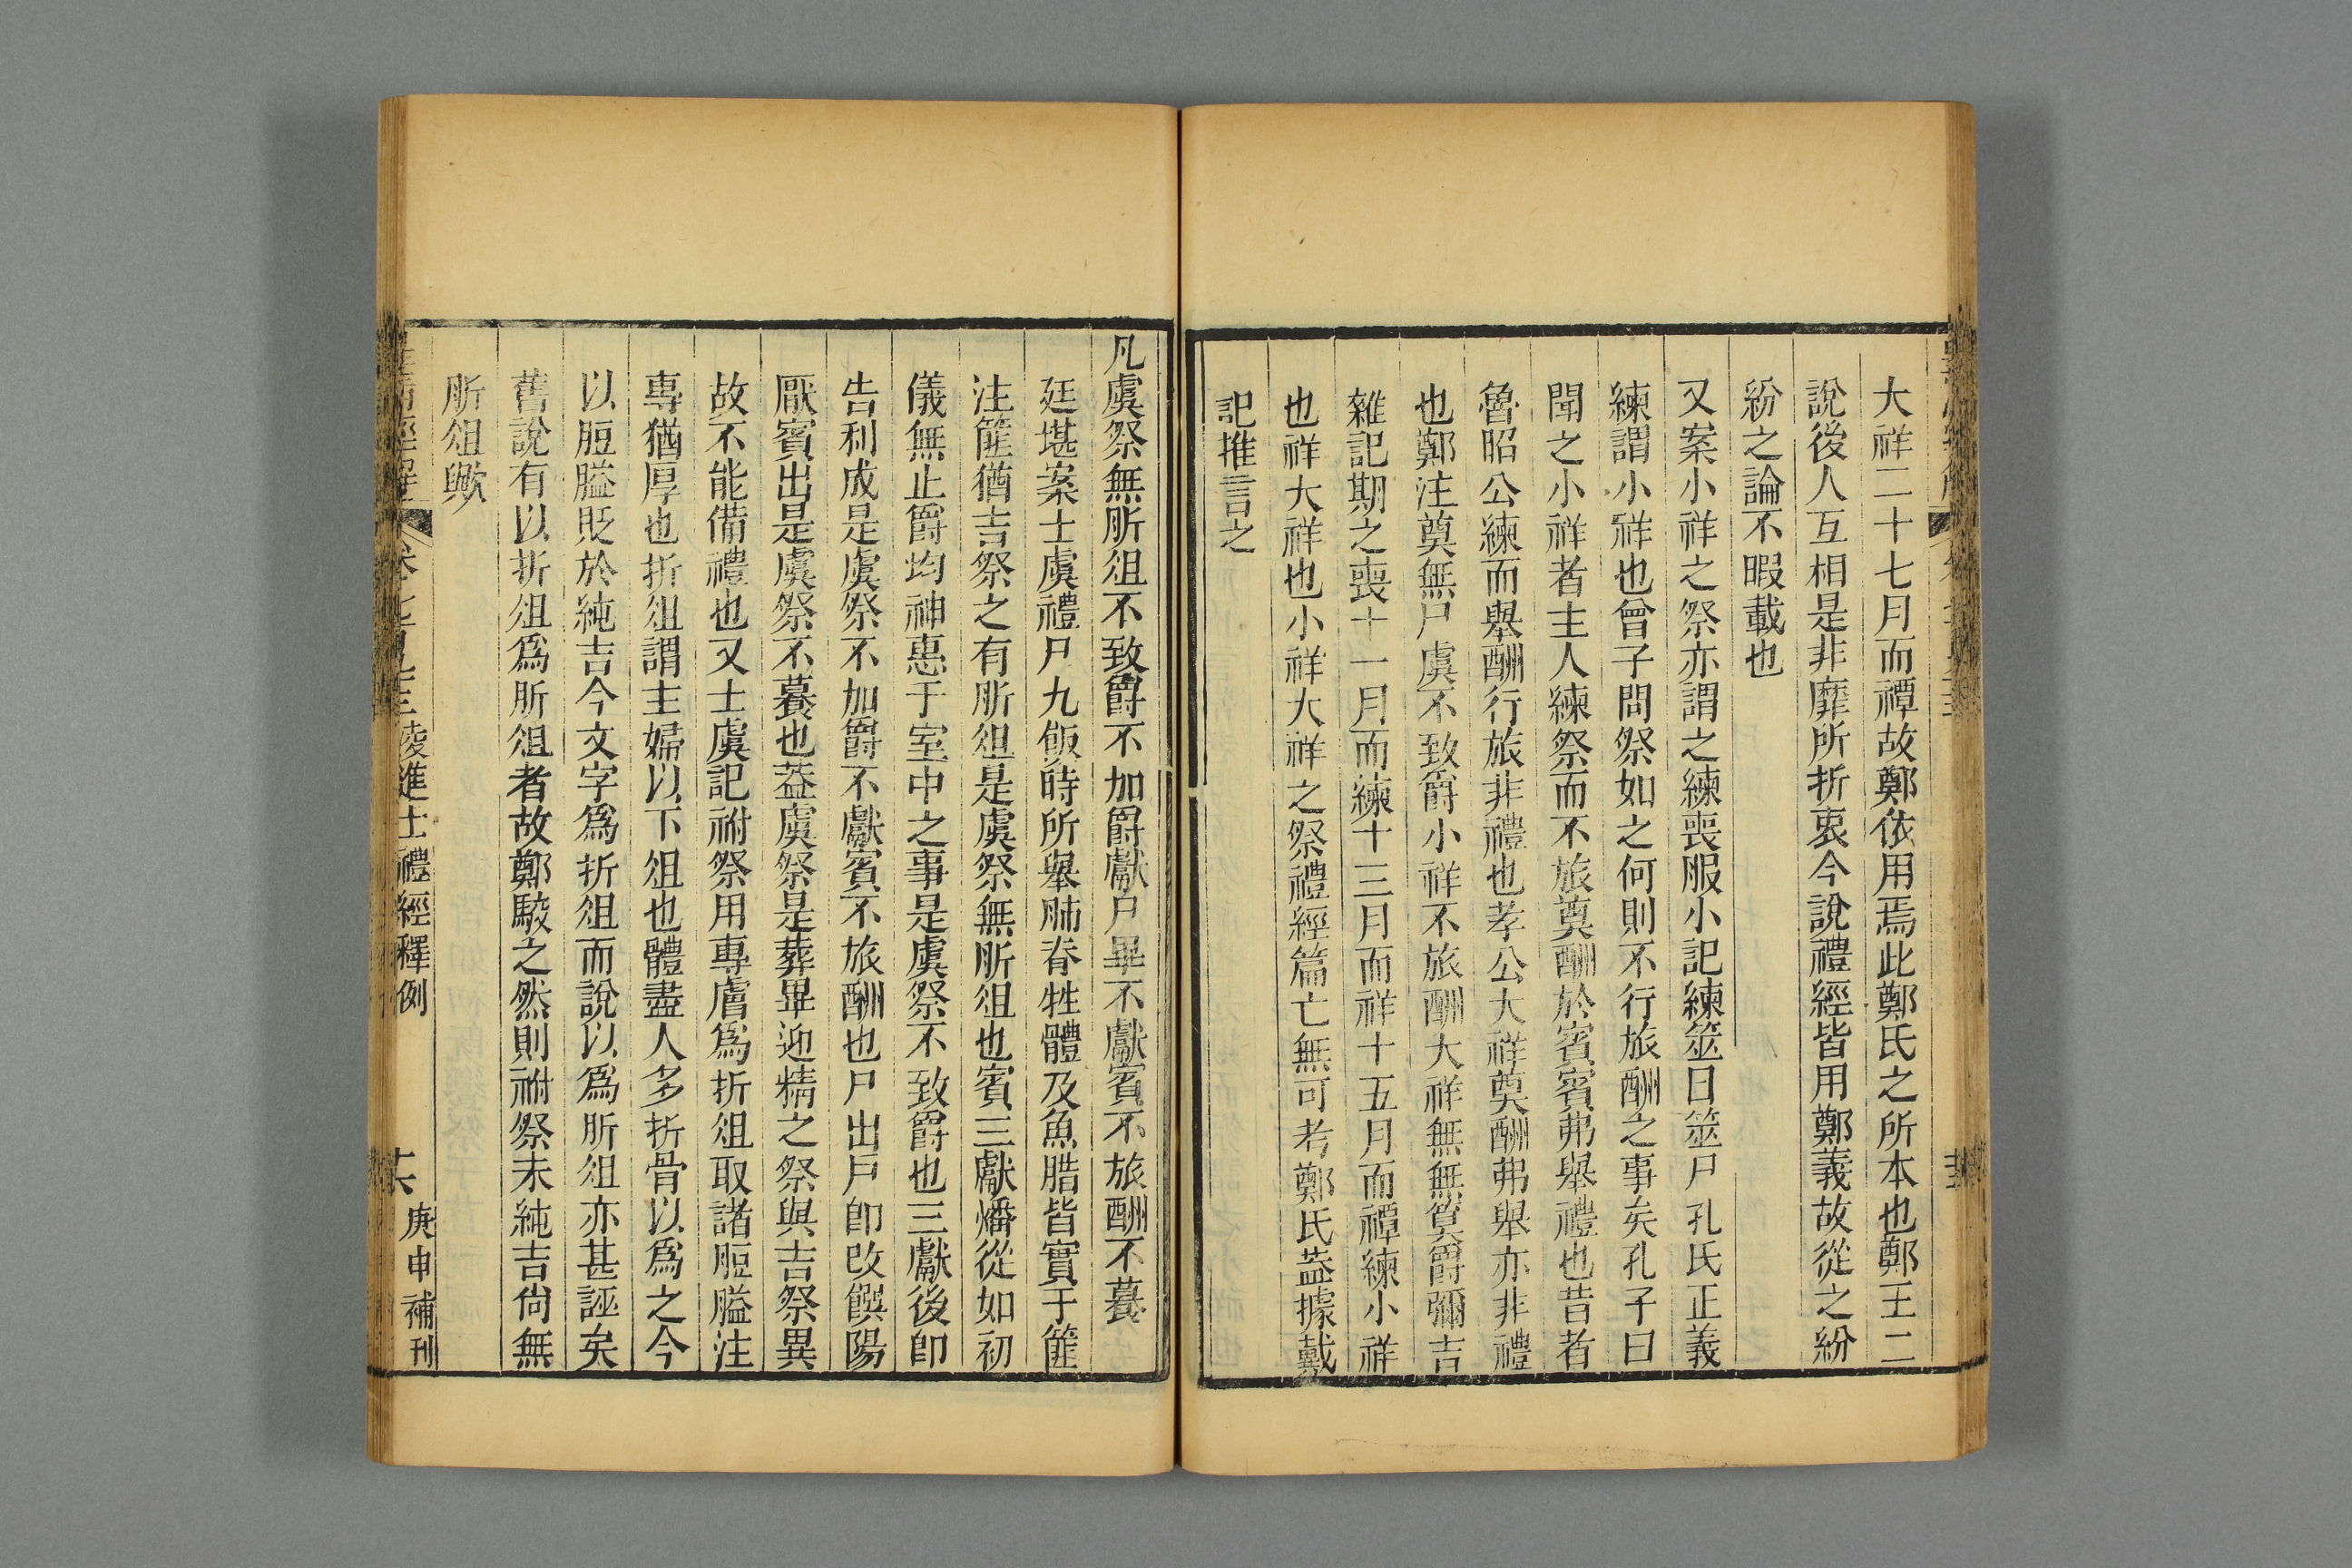 大祥二十七月而禫故鄭依用焉此鄭氏之所本也鄭王二
說後人互相是非靡所折衷今說禮經皆用鄭義故從之紛
紛之論不暇載也
又案小祥之祭亦謂之練喪服小記練筮日筮尸孔氏正義
練謂小祥也曾子問祭如之何則不行旅酬之事矣孔子曰
聞之小祥者主人練祭而不旅奠酬於賓賓弗舉禮也昔者
魯昭公練而舉酬行旅非禮也孝公大祥奠酬弗舉亦非禮
也鄭注奠無尸虞不致爵小祥不旅酬大祥無無筭爵彌吉
雜記期之喪十一月而練十三月而祥十五月而禫練小祥
也祥大祥也小祥大祥之祭禮經篇亡無可考鄭氏葢據戴
記推言之
凡虞祭無肵俎不致爵不加爵獻尸畢不獻賓不旅酬不餕
廷堪案士虞禮尸九飯時所舉肺脊牲體及魚腊皆實于篚
注篚猶吉祭之有肵俎是虞祭無肵俎也賓三獻燔從如初
儀無止爵均神惠于室中之事是虞祭不致爵也三獻後卽
告利成是虞祭不加爵不獻賓不旅酬也尸出戶卽改饌陽
厭賓出是虞祭不餕也葢虞祭是葬畢迎精之祭與吉祭異
故不能備禮也又士虞記祔祭用專膚爲折俎取諸脰膉注
專猶厚也折俎謂主婦以下俎也體盡人多折骨以爲之今
以脰膉貶於純吉今文字爲折俎而說以爲肵俎亦甚誣矣
舊說有以折俎爲肵俎者故鄭駮之然則祔祭未純吉尙無
肵俎歟
凌進士禮經釋例
庚申補刊